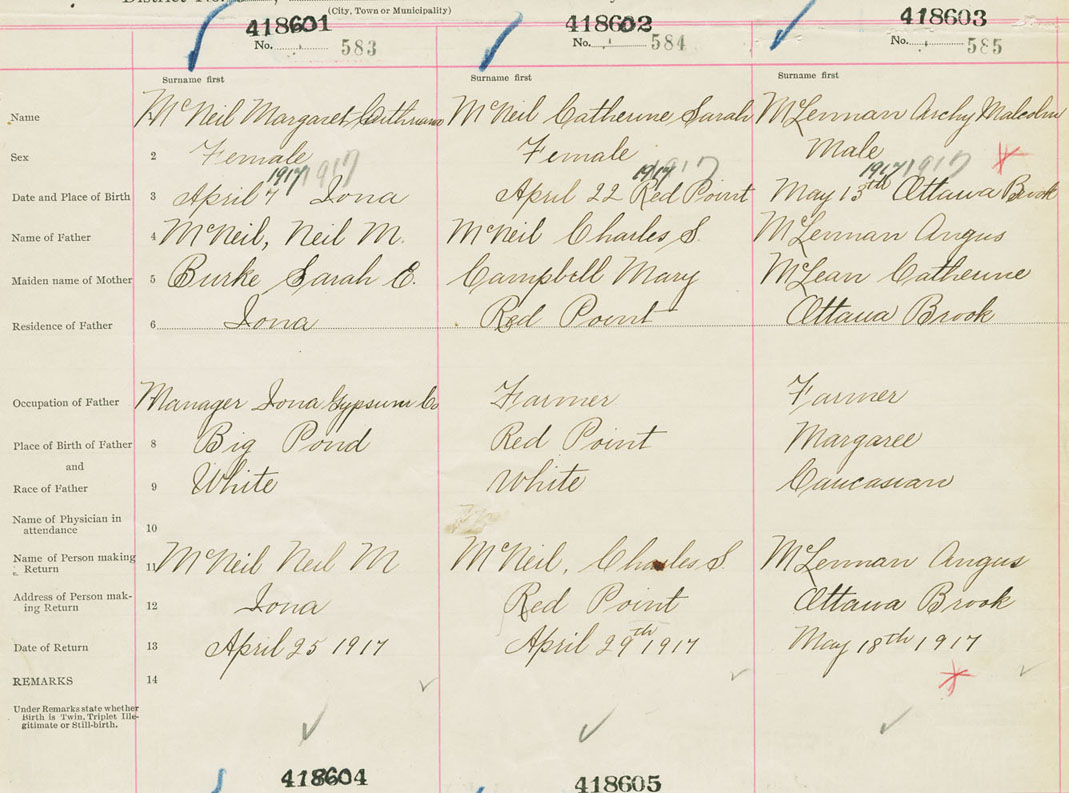 (City, Town or Municipality)
418601 418602 418603
No. 583 No. 584 No. 585
Surname first Surname first Surname first
Name 1 McNeil Margaret McNeil Catherine Sarah McLennan Archy Malcolm
Sex 2 Female Female Male
1917 1917 1917 1917 1917 1917
Date and Place of Birth 3 April 7 Iona April 22 Red Point May 13th Ottawa Brook
Name of Father 4 McNeil, Neil M. McNeil Charles S. McLennan Angus
Maiden name of Mother 5 Burke Sarah E. Campbell Mary McLean Catherine
Residence of Father 6 Iona Red Point Ottawa Brook
Occupation of Father Manager Iona Gypsum Co Farmer Farmer
Place of Birth of Father 8 Big Pond Red Point Margaree
and
Race of Father 9 White White Caucasian
Name of Physician in
attendance 10
Name of Person making
Return 11 McNeil Neil M McNeil, Charles S. McLennan Angus
Address of Person mak-
ing Return 12 Iona Red Point Ottawa Brook
Date of Return 13 April 25 1917 April 29th 1917 May 18th 1917
REMARKS 14
Under Remarks state whether
Birth is Twin, Triplet Ille-
gitimate or Still-birth.
418604 418605